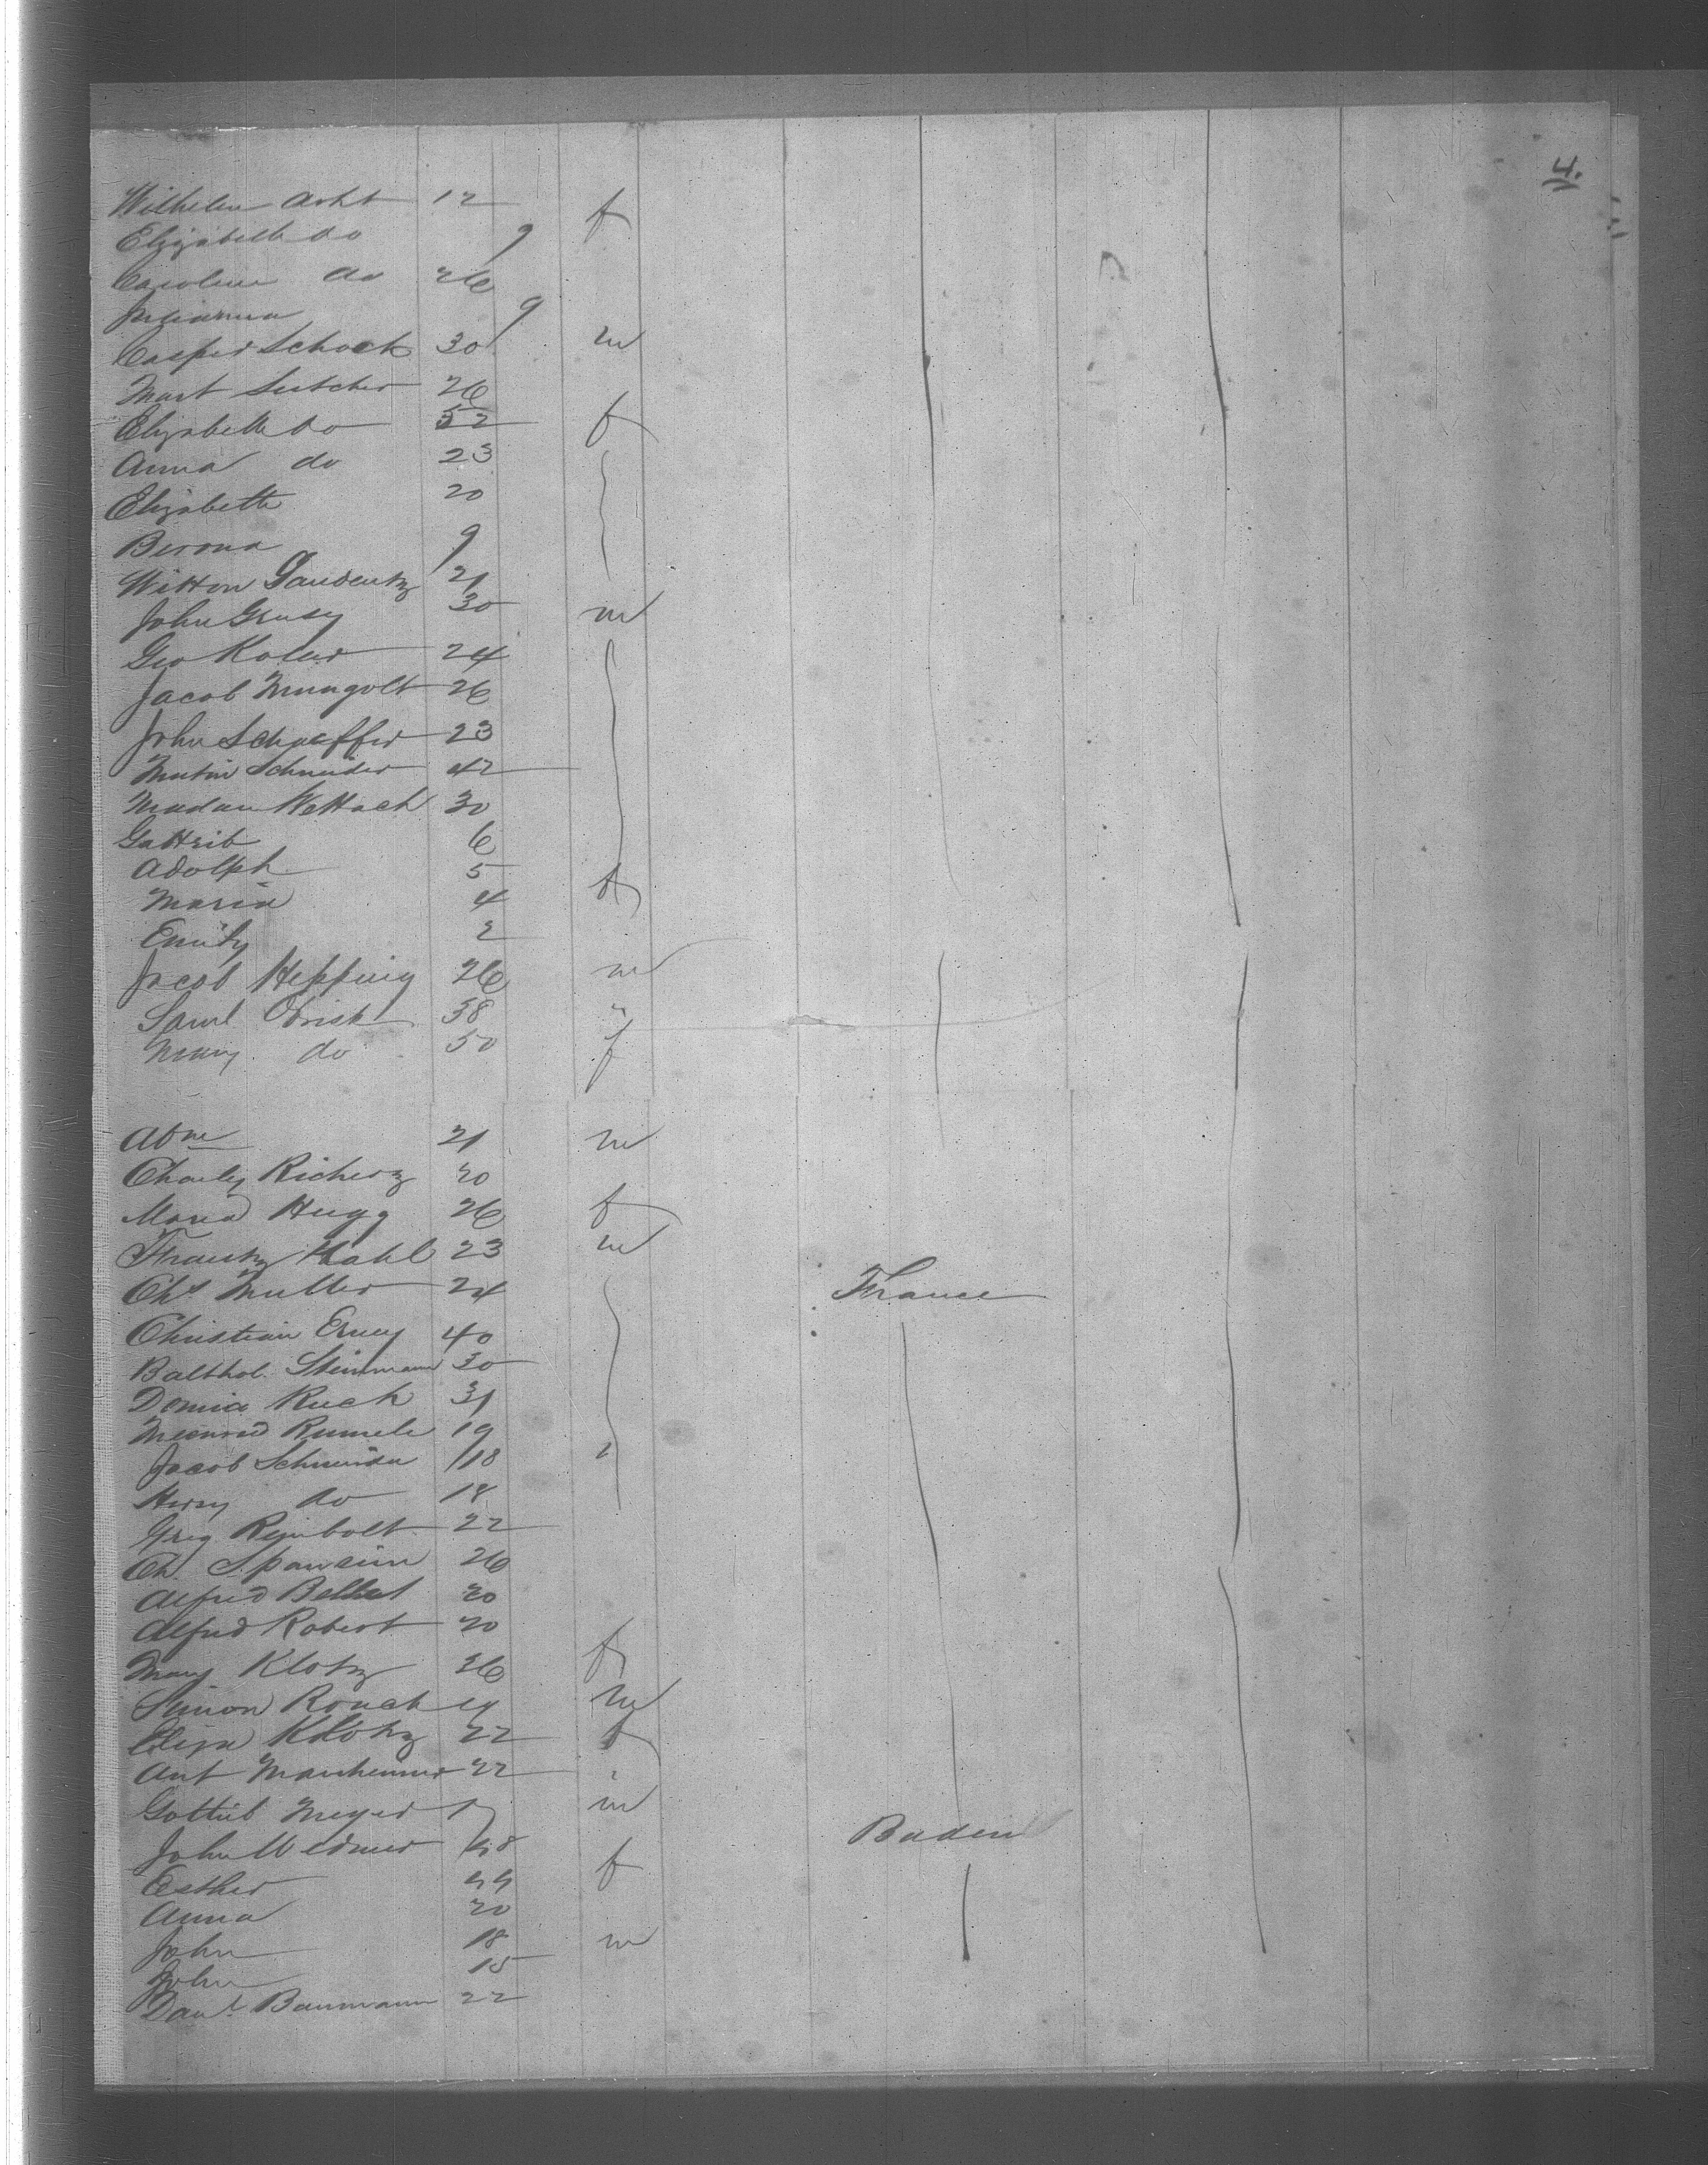 4.
Wilhelm Acht 12 f
Elizabeth do 9
Caroline do 26
Julianna 9
Casper Schock 30 m
Mart 26
Elizabeth do 52 f
Anna do 23
Elizabeth 20
Berona 9
Witton Gaudentz 21
John Grusy 30 m
Geo Koler 24
Jacob Mungolt 26
John Schaeffer 23
Martin Schneider 42
Madam Wettach 30
Gottrib 6
Adolph 5
Maria 4 f
Emily 2
Jacob Hepping 26 m
Saml Obrist 38 "
Mary do 50 f
Abm 21 m
Charley Richerz 20
Maria Hugg 26 f
Frantz Kahl 23 m
Chs Muller 24 France
Christian Erney 40
Balthol. Steinmann 30
Ruch 31
Rumele 19
Jacob Schneider 18
Henry do 18
Greg Reinbolt 22
Ch. 26
Alfred 20
Alfred Robert 20
Mary Klotz 26 f
Simon Rouch 19 m
Eliza Klotz 22 f
Ant Manhemmer 22
Gottlieb Meyer 17 m
John Widmer 48 Baden
Esther 49 f
Anna 20
John 18 m
John 15
Danl. Baumann 22